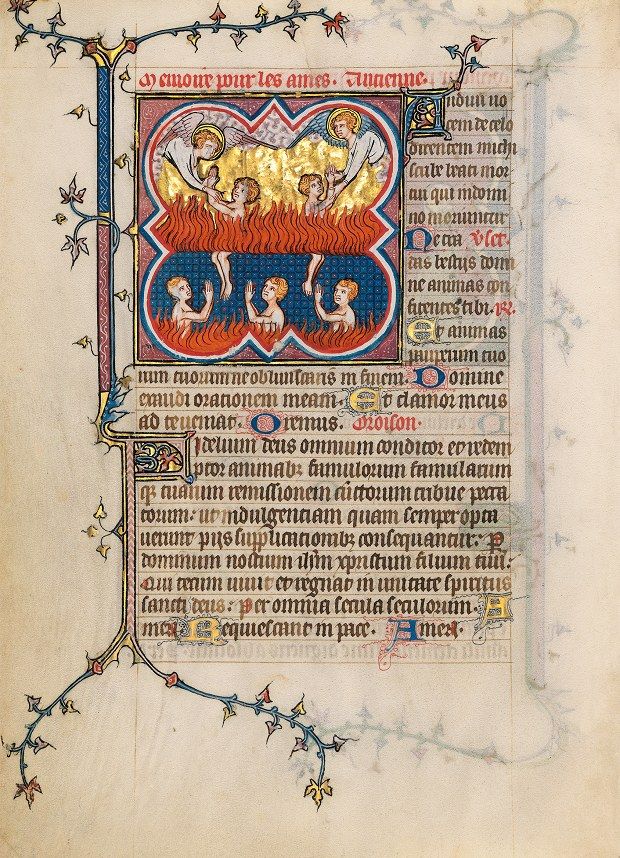 Memoire pour les ames. Antienne.
Audiui uo
cem de celo
dicentem michi
scribe beati mor
tui qui in domi
no moriuntur
Ne tra Vset.
das bestijs domi
ne animas con
fitentes tibi. R.
Et animas
pauperum tuo
rum tuorum ne obliuiscaris in finem. Domine
exaudi orationem meam. Et clamor meus
ad te ueniat. Oremus. Oroison.
Fidelium deus omnium conditor et redem
ptor animabz famulorum famularum
qz tuarum remissionem cūctorum tribue pecca
torum: ut indulgentiam quam semper opta
uerunt pijs supplicationibz consequantur. P
dominum nostrum ihm xpristum filium tuū.
Qui tecum uiuit et regnat in unitate spiritus
sancti deus. Per omnia secula seculorum. A
men Requiescant in pace. Amen.